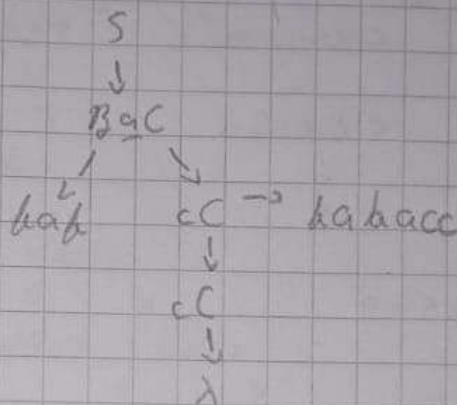 S
↓
BaC
bab cC → babacc
↓
cC
↓
λ